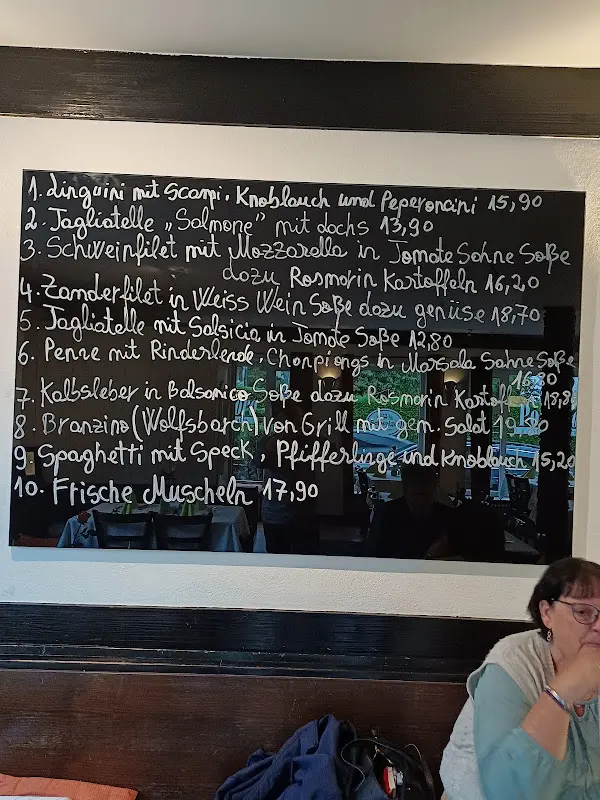 1. Linguini mit Scampi, Knoblauch und Peperoncini 15,90
2. Tagliatelle „Salmone" mit dochs 13,90
3. Schweinfilet mit Mozzarella in Tomate Sahne Soße
dazu Rosmarin Kartoffeln 16,20
4. Zanderfilet in Weiss Wein Soße dazu genüse 18,70
5. Tagliatelle mit Salsicia in Tomate Soße 12,80
6. Penne mit Rinderlende, Chanpiongs in Marsala Sahne Soße
16,80
7. Kalbsleber in Balsamico Soße dazu Rosmarin 18,80
8. Branzino (Wolfsbarch) von Grill mit gem. Salat
9. Spaghetti mit Speck, Pfifferlinge und Knoblauch 15,20
10. Frische Muscheln 17,90